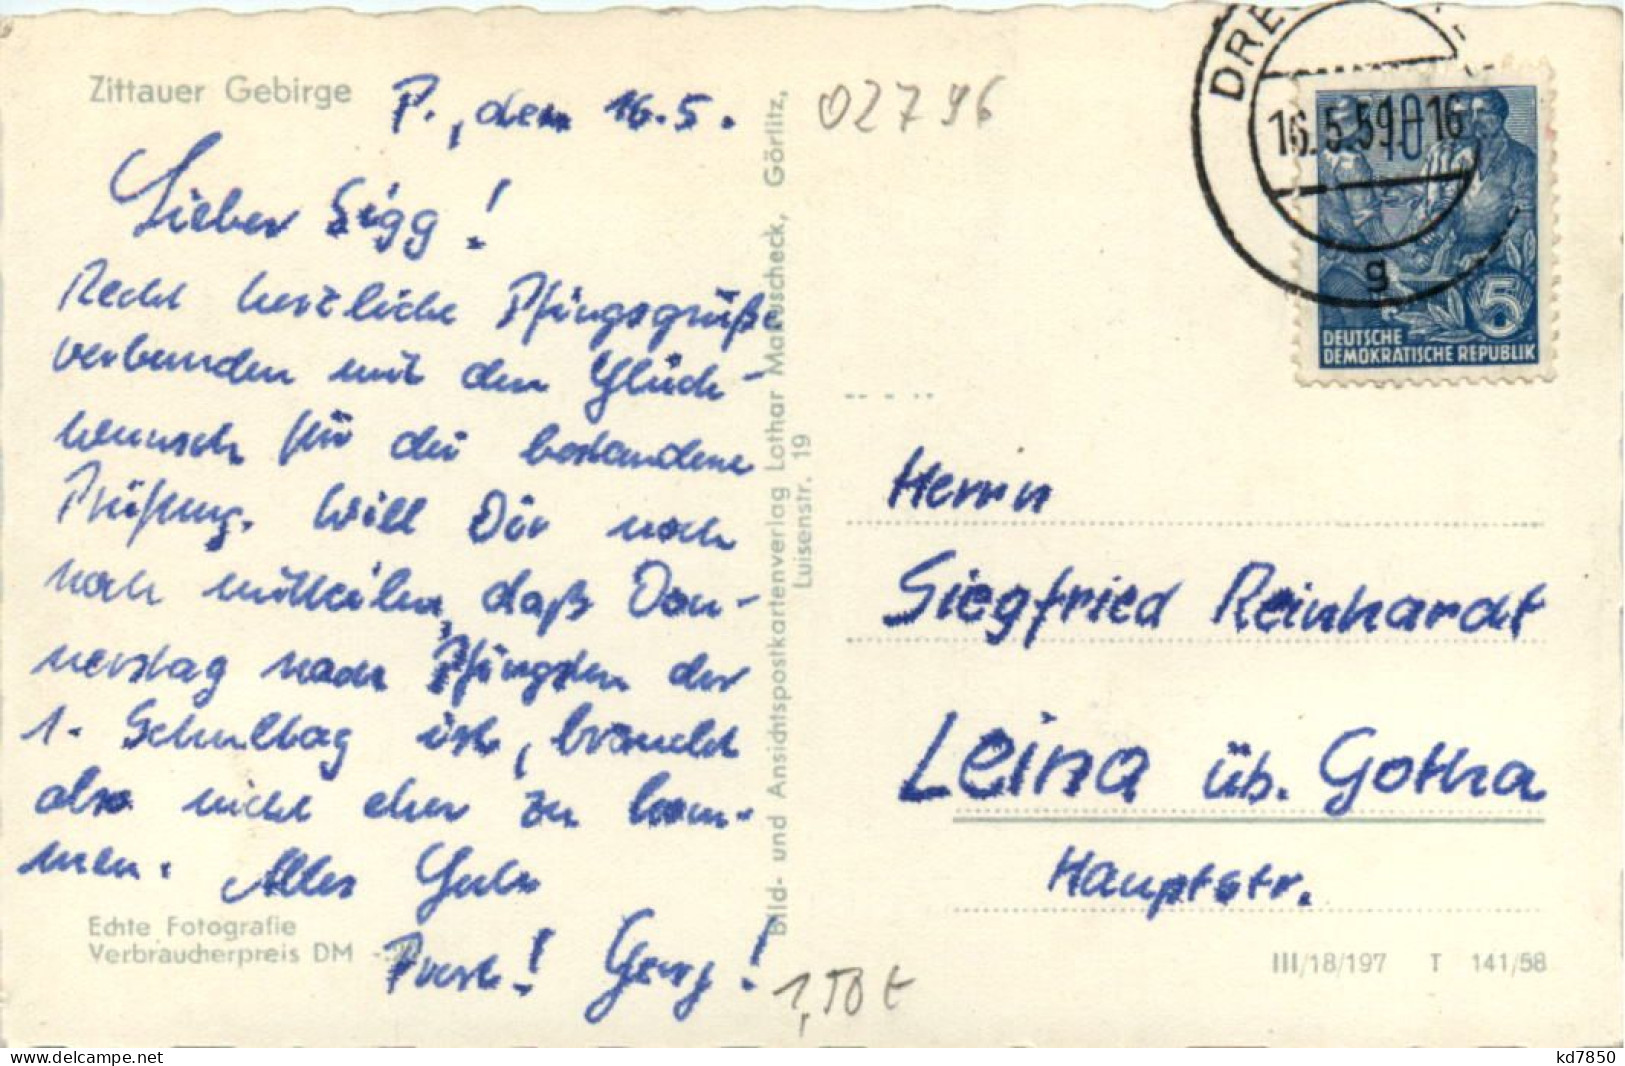 Zittauer Gebirge
P., den 16.5.
Lieber Sigg!
Recht herzliche Pfingsgrüße
verbunden mit den Glück-
wunsch für die bestandene
Prüfung. Will Dir noch
noch mitteilen, daß Don-
nerstag nach Pfingsten der
1. Schultag ist, brauchst
also nicht eher zu kom-
men. Alles Gute
Prost! Georg!
Echte Fotografie
Verbraucherpreis DM
Bild- und Ansichtspostkartenverlag Lothar Matuscheck, Görlitz,
Luisenstr. 19
02796
16.5.59.-16
g
10
5
DEUTSCHE
DEMOKRATISCHE REPUBLIK
Herrn
Siegfried Reinhardt
Leina üb. Gotha
Hauptstr.
III/18/197 T 141/58
1,50 €
kd7850